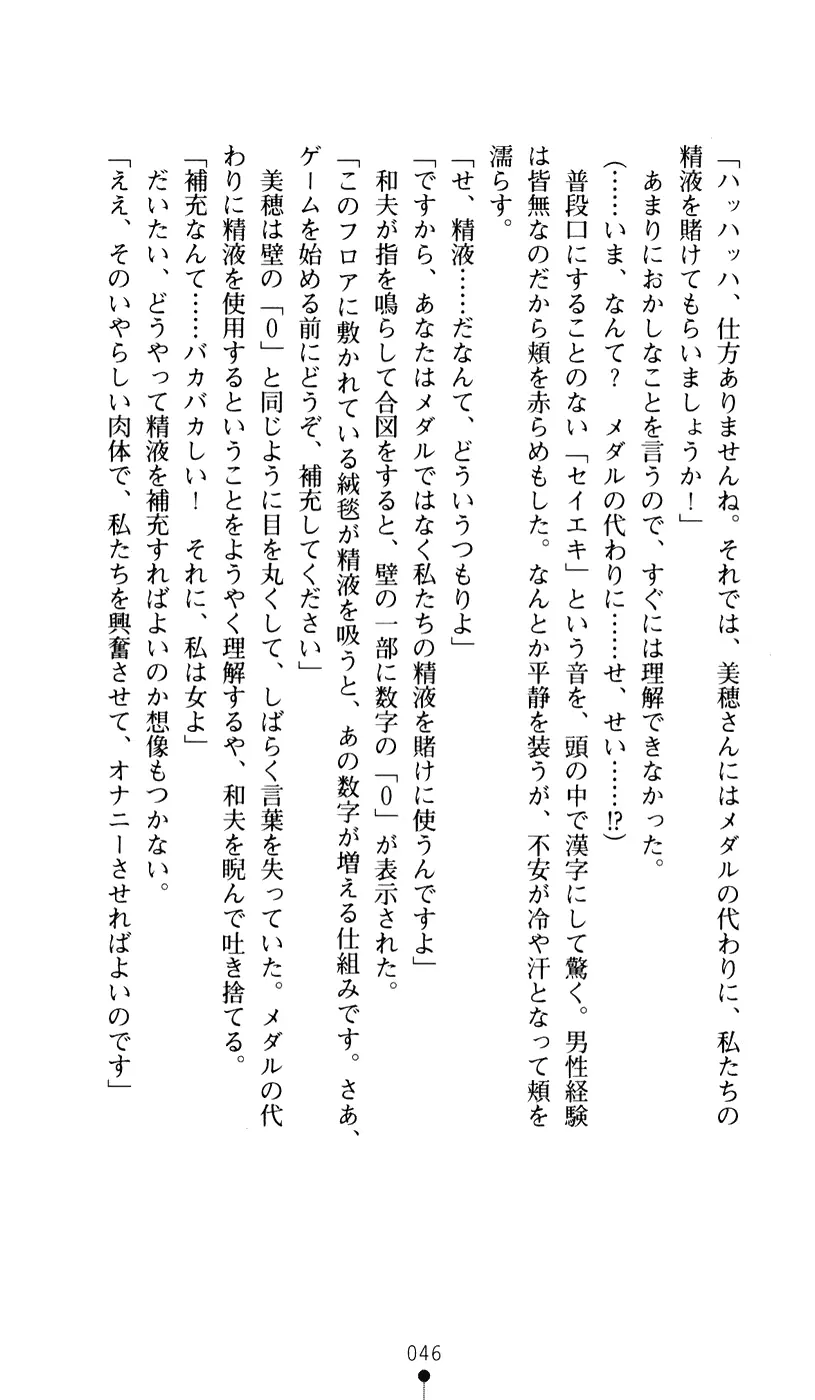 「ハッハッハ、仕方ありませんね。それでは、美穂さんにはメダルの代わりに、私たちの
精液を賭けてもらいましょうか！」
　あまりにおかしなことを言うので、すぐには理解できなかった。
（……いま、なんて？　メダルの代わりに……せ、せい……!?）
　普段口にすることのない「セイエキ」という音を、頭の中で漢字にして驚く。男性経験
は皆無なのだから頬を赤らめもした。なんとか平静を装うが、不安が冷や汗となって頬を
濡らす。
「せ、精液……だなんて、どういうつもりよ」
「ですから、あなたはメダルではなく私たちの精液を賭けに使うんですよ」
　和夫が指を鳴らして合図をすると、壁の一部に数字の「0」が表示された。
「このフロアに敷かれている絨毯が精液を吸うと、あの数字が増える仕組みです。さあ、
ゲームを始める前にどうぞ、補充してください」
　美穂は壁の「0」と同じように目を丸くして、しばらく言葉を失っていた。メダルの代
わりに精液を使用するということをようやく理解するや、和夫を睨んで吐き捨てる。
「補充なんて……バカバカしい！　それに、私は女よ」
　だいたい、どうやって精液を補充すればよいのか想像もつかない。
「ええ、そのいやらしい肉体で、私たちを興奮させて、オナニーさせればよいのです」
046